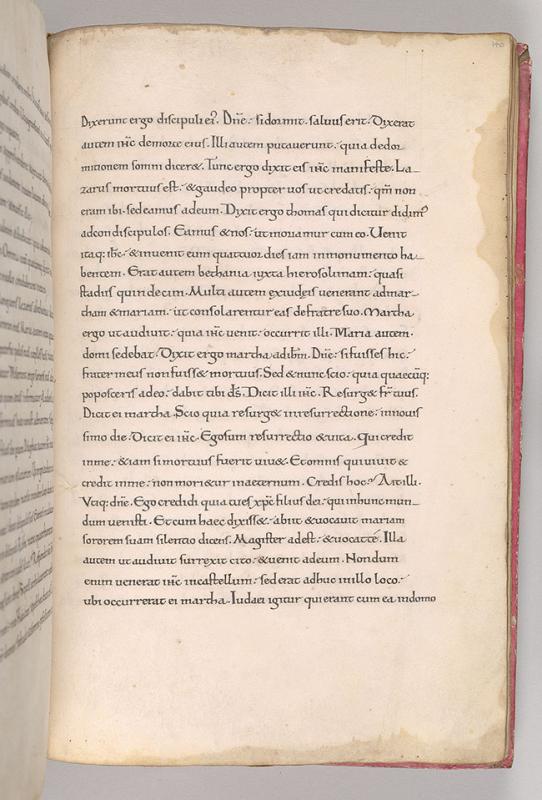 Dixerunt ergo discipuli ei᾽. Dn̄e: si dormit. salvus erit. Dixerat
autem ih̄c demorte eius. Illi autem putaverunt: quia dedor
mitionem somni dicer&. Tunc ergo dixit eis ih̄c manifeste. La_
zarus mortuus est: &gaudeo propter uos ut credatis: qm̄ non
eram ibi. sed eamus adeum. Dixit ergo thomas qui dicitur didim᾽
adcondiscipulos. Eamus &nos: ut moriamur cum eo. Uenit
itaq: ih̄c: &invenit eum quattuor dies iam inmonumento ha_
bentem. Erat autem bethania iuxta hierosolimam: quasi
stadiis quindecim. Multi autem exiudeis venerant admar_
tham &mariam. ut consolarentur eas defratre suo. Martha
ergo ut audiuit: quia ih̄c uenit: occurrit illi. Maria autem.
domi sedebat. Dixit ergo martha adih̄m. Dn̄e: si fuisses hic:
frater meus non fuiss& mortuus. Sed &nunc scio: quia quaecūq:
poposceris adeo: dabit tibi d̄s. Dicit illi ih̄c. Resurg& fr̄ tuus.
Dicit ei martha. Scio quia resurg& inresurrectione: innouis
simo die. Dicit ei ih̄c. Ego sum resurrectio &uita. Qui credit
inme: &iam si mortuus fuerit uiu&. Et omnis qui uiuit &
credit inme: non mori&ur inaeternum. Credis hoc? Ait illi.
Vtiq: dn̄e. Ego credidi quia tu es xp̄c filius dei: qui inhunc mun_
dum venisti. Et cum haec dixiss&: abiit &uocauit mariam
sororem suam silentio dicens. Magister adest: &uocat té. Illa
autem ut audiuit surrexit cito: &uenit adeum. Nondum
enim uenerat ih̄c incastellum: sed erat adhuc inillo loco:
ubi occurrerat ei martha. Iudaei igitur qui erant cum ea indomo